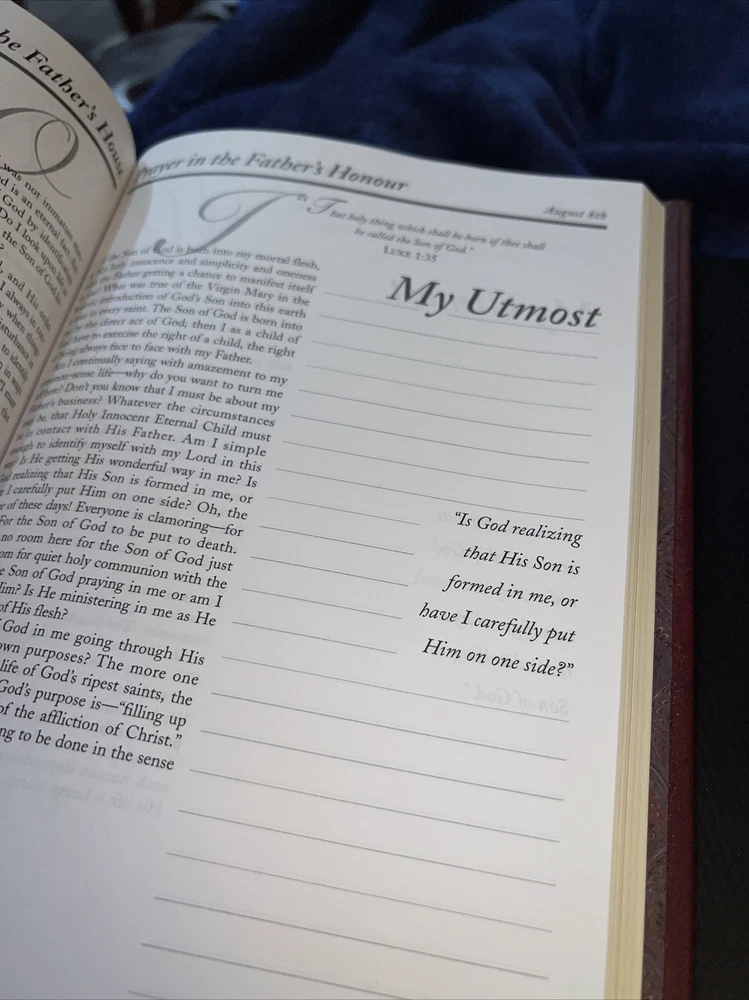 he Father's House
was not
d is an eternal fact
God by
Do I look upon
the Son of God
and His
I always
Prayer in the Father's Honour
August 8th
"That holy thing which shall be born of thee shall
be called the Son of God."
LUKE 1:35
the Son of God is born into my mortal flesh,
innocence and simplicity and oneness
Father getting a chance to manifest itself
What was true of the Virgin Mary in the
introduction of God's Son into this earth
in every saint. The Son of God is born into
the direct act of God; then I as a child of
have to exercise the right of a child, the right
always face to face with my Father.
I continually saying with amazement to my
sense life—why do you want to turn me
there? Don't you know that I must be about my
Father's business? Whatever the circumstances
be, that Holy Innocent Eternal Child must
in contact with His Father. Am I simple
to identify myself with my Lord in this
Is He getting His wonderful way in me? Is
God realizing that His Son is formed in me, or
I carefully put Him on one side? Oh, the
of these days! Everyone is clamoring—for
For the Son of God to be put to death.
no room here for the Son of God just
for quiet holy communion with the
Son of God praying in me or am I
Him? Is He ministering in me as He
of His flesh?
God in me going through His
own purposes? The more one
life of God's ripest saints, the
God's purpose is—"filling up
of the affliction of Christ."
ng to be done in the sense
My Utmost
"Is God realizing
that His Son is
formed in me, or
have I carefully put
Him on one side?"